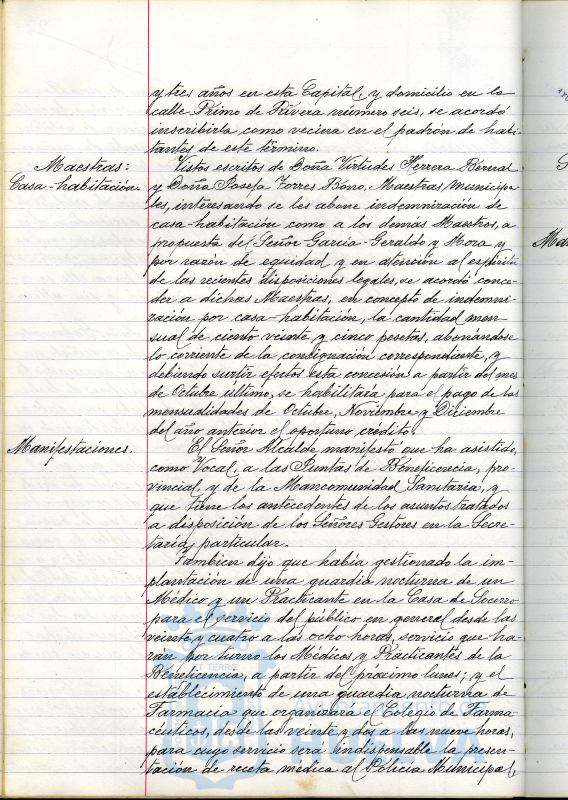 y tres años en esta Capital, y domicilio en la
calle Primo de Rivera número seis, se acordó
inscribirla como vecina en el padrón de habi-
tantes de este término.
Maestras:
Casa-habitación.
Vistos escritos de Doña Virtudes Herrera Bernal
y Doña Josefa Torres Bono, Maestras Municipa-
les, interesando se les abone indemnización de
casa-habitación como a los demás Maestros, a
propuesta del Señor García-Geraldo y Mora y
por razón de equidad y en atención al espíritu
de las recientes disposiciones legales, se acordó conce-
der a dichas Maestras, en concepto de indemni-
zación por casa-habitación, la cantidad men-
sual de ciento veinte y cinco pesetas, abonándose
lo corriente de la consignación correspondiente, y
debiendo surtir efectos esta concesión a partir del mes
de Octubre último, se habilitará para el pago de las
mensualidades de Octubre, Noviembre y Diciembre
del año anterior el oportuno crédito.
Manifestaciones.
El Señor Alcalde manifestó que ha asistido,
como Vocal, a las Juntas de Beneficencia, pro-
vincial, y de la Mancomunidad Sanitaria, y
que tiene los antecedentes de los asuntos tratados
a disposición de los Señores Gestores en la Secre-
taría particular.
Tambien dijo que había gestionado la im-
plantación de una guardia nocturna de un
Médico y un Practicante en la Casa de Socorro
para el servicio del público en general desde las
veinte y cuatro a las ocho horas, servicio que ha-
rán por turno los Médicos y Practicantes de la
Beneficencia, a partir del próximo lunes; y el
establecimiento de una guardia nocturna de
Farmacia que organizará el Colegio de Farma-
céuticos, desde las veinte y dos a las nueve horas,
para cuyo servicio será indispensable la presen-
tación de receta médica al Policía Municipal,
Ma